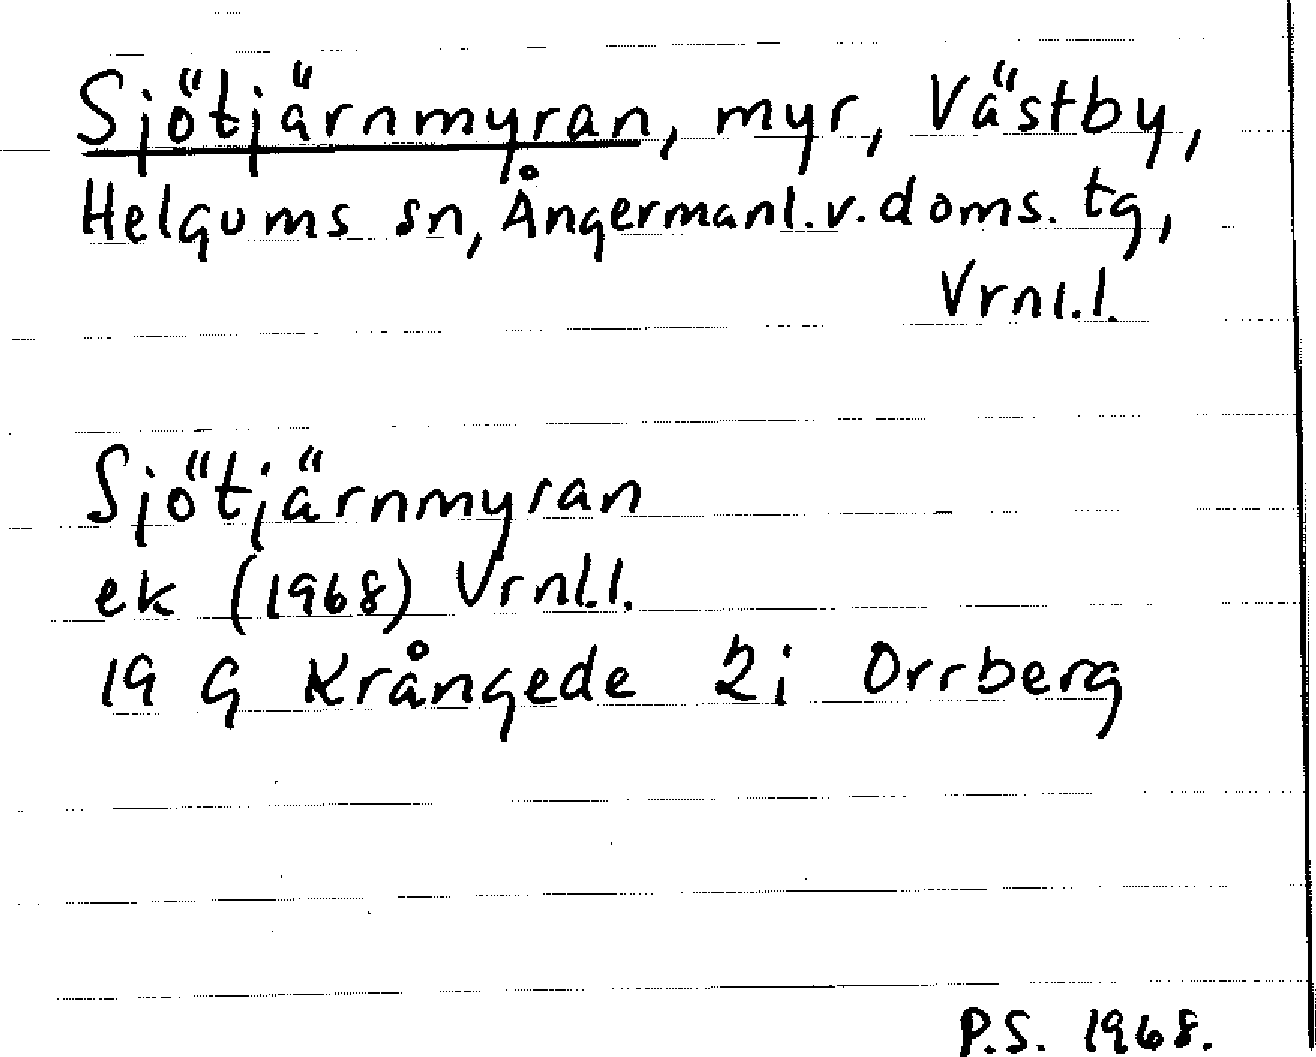 Sjötjärnmyran, myr, Västby,
Helgums sn, Ångermanl.v.doms. tg,
Vrnl.l.
Sjötjärnmyran
ek (1968) Vrnl.l.
19 G Krångede 2i Orrberg
P.S. 1968.